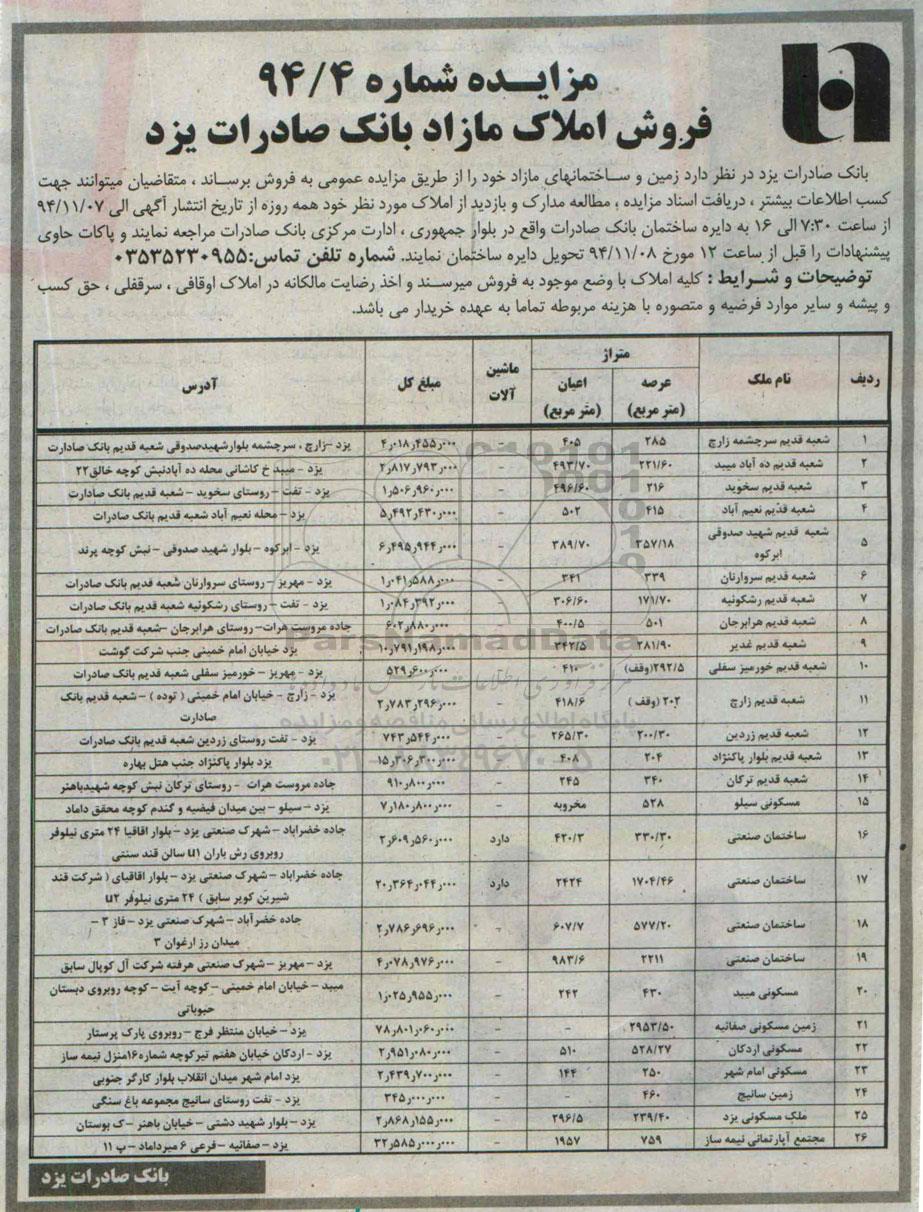 مزایـــده شماره ۹۴/۴
فروش املاک مازاد بانک صادرات یزد
بانک صادرات یزد در نظر دارد زمین و ســاختمانهای مازاد خود را از طریق مزایده عمومی به فروش برساند ، متقاضیان میتوانند جهت
کسب اطلاعات بیشتر ، دریافت اسناد مزایده ، مطالعه مدارک و بازدید از املاک مورد نظر خود همه روزه از تاریخ انتشار آگهی الی ۹۴/۱۱/۰۷
از ساعت ۷:۳۰ الی ۱۶ به دایره ساختمان بانک صادرات واقع در بلوار جمهوری ، ادارت مرکزی بانک صادرات مراجعه نمایند و پاکات حاوی
پیشنهادات را قبل از ساعت ۱۲ مورخ ۹۴/۱۱/۰۸ تحویل دایره ساختمان نمایند. شماره تلفن تماس:۰۳۵۳۵۲۳۰۹۵۵
توضیحات و شــرایط : کلیه املاک با وضع موجود به فروش میرسند و اخذ رضایت مالکانه در املاک اوقافی ، سرقفلی ، حق کسب
و پیشه و سایر موارد فرضیه و متصوره با هزینه مربوطه تماما به عهده خریدار می باشد.
ردیف نام ملک متراژ عرصه (متر مربع) اعیان (متر مربع) ماشین آلات مبلغ کل آدرس
۱ شعبه قدیم سرچشمه زارچ ۲۸۵ ۴۰۵ - ۴٫۰۱۸٫۴۵۵٫۰۰۰ یزد –زارچ ، سرچشمه بلوارشهیدصدوقی شعبه قدیم بانک صادرات
۲ شعبه قدیم ده آباد میبد ۲۲۱/۶۰ ۴۹۳/۷۰ - ۲٫۸۱۷٫۷۹۳٫۰۰۰ یزد – میبد خ کاشانی محله ده آبادنبش کوچه خالق۲۲
۳ شعبه قدیم سخوید ۲۱۶ ۴۹۶/۶۰ - ۱٫۵۰۶٫۹۶۰٫۰۰۰ یزد – تفت – روستای سخوید – شعبه قدیم بانک صادرات
۴ شعبه قدیم نعیم آباد ۴۱۵ ۵۰۲ - ۵٫۴۹۲٫۴۳۰٫۰۰۰ یزد – محله نعیم آباد شعبه قدیم بانک صادرات
۵ شعبه قدیم شهید صدوقی ابرکوه ۳۵۷/۱۸ ۳۸۹/۷۰ - ۶٫۴۹۵٫۹۴۴٫۰۰۰ یزد – ابرکوه – بلوار شهید صدوقی – نبش کوچه پرند
۶ شعبه قدیم سروارنان ۳۳۹ ۳۴۱ - ۱٫۰۴۱٫۵۸۸٫۰۰۰ یزد – مهریز – روستای سروارنان شعبه قدیم بانک صادرات
۷ شعبه قدیم رشکوئیه ۱۷۱/۷۰ ۳۰۶/۶۰ - ۱٫۰۸۴٫۳۹۲٫۰۰۰ یزد – تفت – روستای رشکوئیه شعبه قدیم بانک صادرات
۸ شعبه قدیم هرابرجان ۵۰۱ ۴۰۰/۵ - ۶۰۲٫۸۸۰٫۰۰۰ جاده مروست هرات– روستای هرابرجان –شعبه قدیم بانک صادرات
۹ شعبه قدیم غدیر ۲۸۱/۹۰ ۳۴۲/۵ - ۱۰٫۷۹۱٫۱۹۸٫۰۰۰ یزد خیابان امام خمینی جنب شرکت گوشت
۱۰ شعبه قدیم خورمیز سفلی ۲۹۲/۵(وقف) ۴۱۰ - ۵۲۹٫۶۰۰٫۰۰۰ یزد – مهریز – خورمیز سفلی شعبه قدیم بانک صادرات
۱۱ شعبه قدیم زارچ ۲۰۲ (وقف) ۴۱۸/۶ - ۲٫۷۸۳٫۲۹۶٫۰۰۰ یزد – زارچ – خیابان امام خمینی ( توده ) – شعبه قدیم بانک صادرات
۱۲ شعبه قدیم زردین ۲۰۰/۳۰ ۲۶۵/۳۰ - ۷۴۳٫۵۴۴٫۰۰۰ یزد – تفت روستای زردین شعبه قدیم بانک صادرات
۱۳ شعبه قدیم بلوار پاکنژاد ۲۰۴ ۴۰۸ - ۱۵٫۳۰۶٫۳۰۰٫۰۰۰ یزد بلوار پاکنژاد جنب هتل بهاره
۱۴ شعبه قدیم ترکان ۳۴۰ ۲۴۵ - ۹۱۰٫۸۰۰٫۰۰۰ جاده مروست هرات – روستای ترکان نبش کوچه شهیدباهنر
۱۵ مسکونی سیلو ۵۲۸ مخروبه - ۷٫۱۸۰٫۸۰۰٫۰۰۰ یزد – سیلو – بین میدان فیضیه و گندم کوچه محقق داماد
۱۶ ساختمان صنعتی ۳۳۰/۳۰ ۴۲۰/۳ دارد ۲٫۶۰۹٫۵۶۰٫۰۰۰ جاده خضراباد – شهرک صنعتی یزد – بلوار اقاقیا ۲۴ متری نیلوفر روبروی رش باران u۱ سالن قند سنتی
۱۷ ساختمان صنعتی ۱۷۰۴/۴۶ ۲۴۲۴ دارد ۲۰٫۳۶۴٫۰۴۴٫۰۰۰ جاده خضراباد – شهرک صنعتی یزد – بلوار اقاقیای ( شرکت قند شیرین کویر سابق ) ۲۴ متری نیلوفر u۲
۱۸ ساختمان صنعتی ۵۷۷/۲۰ ۶۰۷/۷ - ۲٫۷۸۶٫۶۹۶٫۰۰۰ جاده خضرآباد – شهرک صنعتی یزد – فاز ۳ – میدان رز ارغوان ۳
۱۹ ساختمان صنعتی ۲۲۱۱ ۹۸۳/۶ - ۴٫۰۷۸٫۹۷۶٫۰۰۰ یزد – مهریز – شهرک صنعتی هرفته شرکت آل کوپال سابق
۲۰ مسکونی میبد ۴۳۰ ۲۴۲ - ۱٫۰۲۵٫۹۵۵٫۰۰۰ میبد – خیابان امام خمینی – کوچه آیت – کوچه روبروی دبستان حبوباتی
۲۱ زمین مسکونی صفائیه ۲۹۵۳/۵۰ - - ۷۸٫۸۰۱٫۰۶۰٫۰۰۰ یزد – خیابان منتظر فرج – روبروی پارک پرستار
۲۲ مسکونی اردکان ۵۲۸/۲۷ ۵۱۰ - ۲٫۹۵۱٫۰۸۰٫۰۰۰ یزد – اردکان خیابان هفتم تیرکوچه شماره۱۶منزل نیمه ساز
۲۳ مسکونی امام شهر ۲۵۰ ۱۴۴ - ۲٫۴۳۹٫۷۰۰٫۰۰۰ یزد امام شهر میدان انقلاب بلوار کارگر جنوبی
۲۴ زمین سانیج ۴۶۰ - - ۳۴۵٫۰۰۰٫۰۰۰ یزد – تفت روستای سانیج مجموعه باغ سنگی
۲۵ ملک مسکونی یزد ۲۳۹/۴۰ ۲۹۶/۵ - ۲٫۸۶۸٫۱۵۵٫۰۰۰ یزد – بلوار شهید دشتی – خیابان باهنر – ک بوستان
۲۶ مجتمع آپارتمانی نیمه ساز ۷۵۹ ۱۹۵۷ - ۳۲٫۵۸۵٫۰۰۰٫۰۰۰ یزد – صفائیه –فرعی ۶ میرداماد – پ ۱۱
بانک صادرات یزد
ParsNamadData
پایگاه اطلاع رسانی مناقصه و مزایده
۰۲۱-۸۸۳۴۹۶۷۰-۵